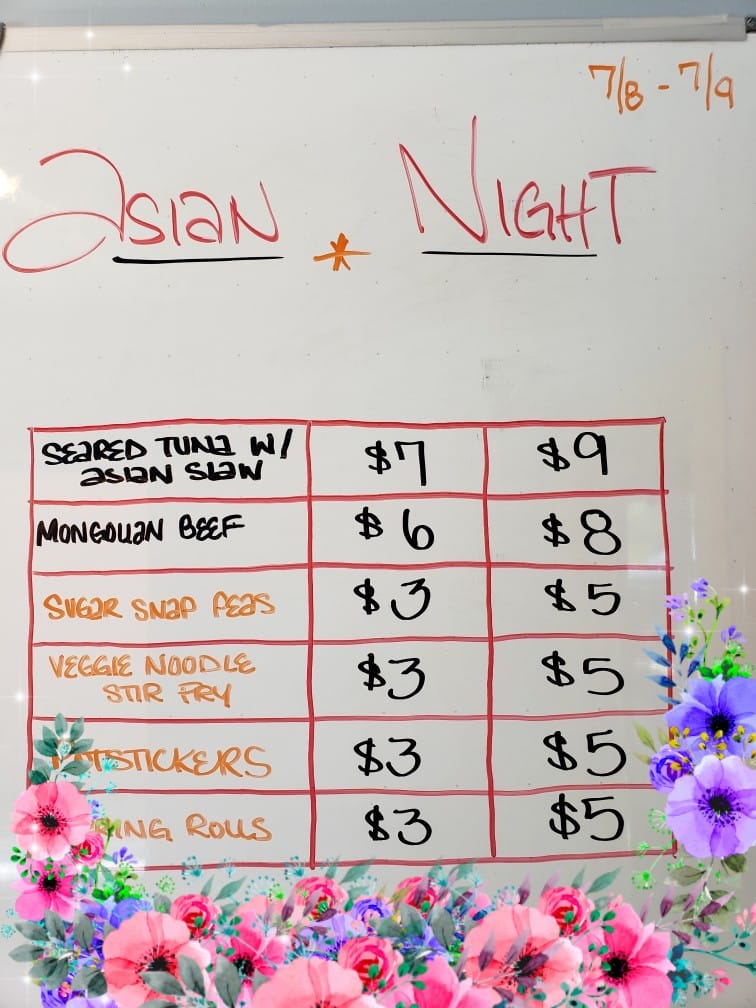 7/8 - 7/9
ASIAN * NIGHT
SEARED TUNA W/ $7 $9
ASIAN SLAW
MONGOLIAN BEEF $6 $8
SUGAR SNAP PEAS $3 $5
VEGGIE NOODLE $3 $5
STIR FRY
POTSTICKERS $3 $5
SPRING ROLLS $3 $5